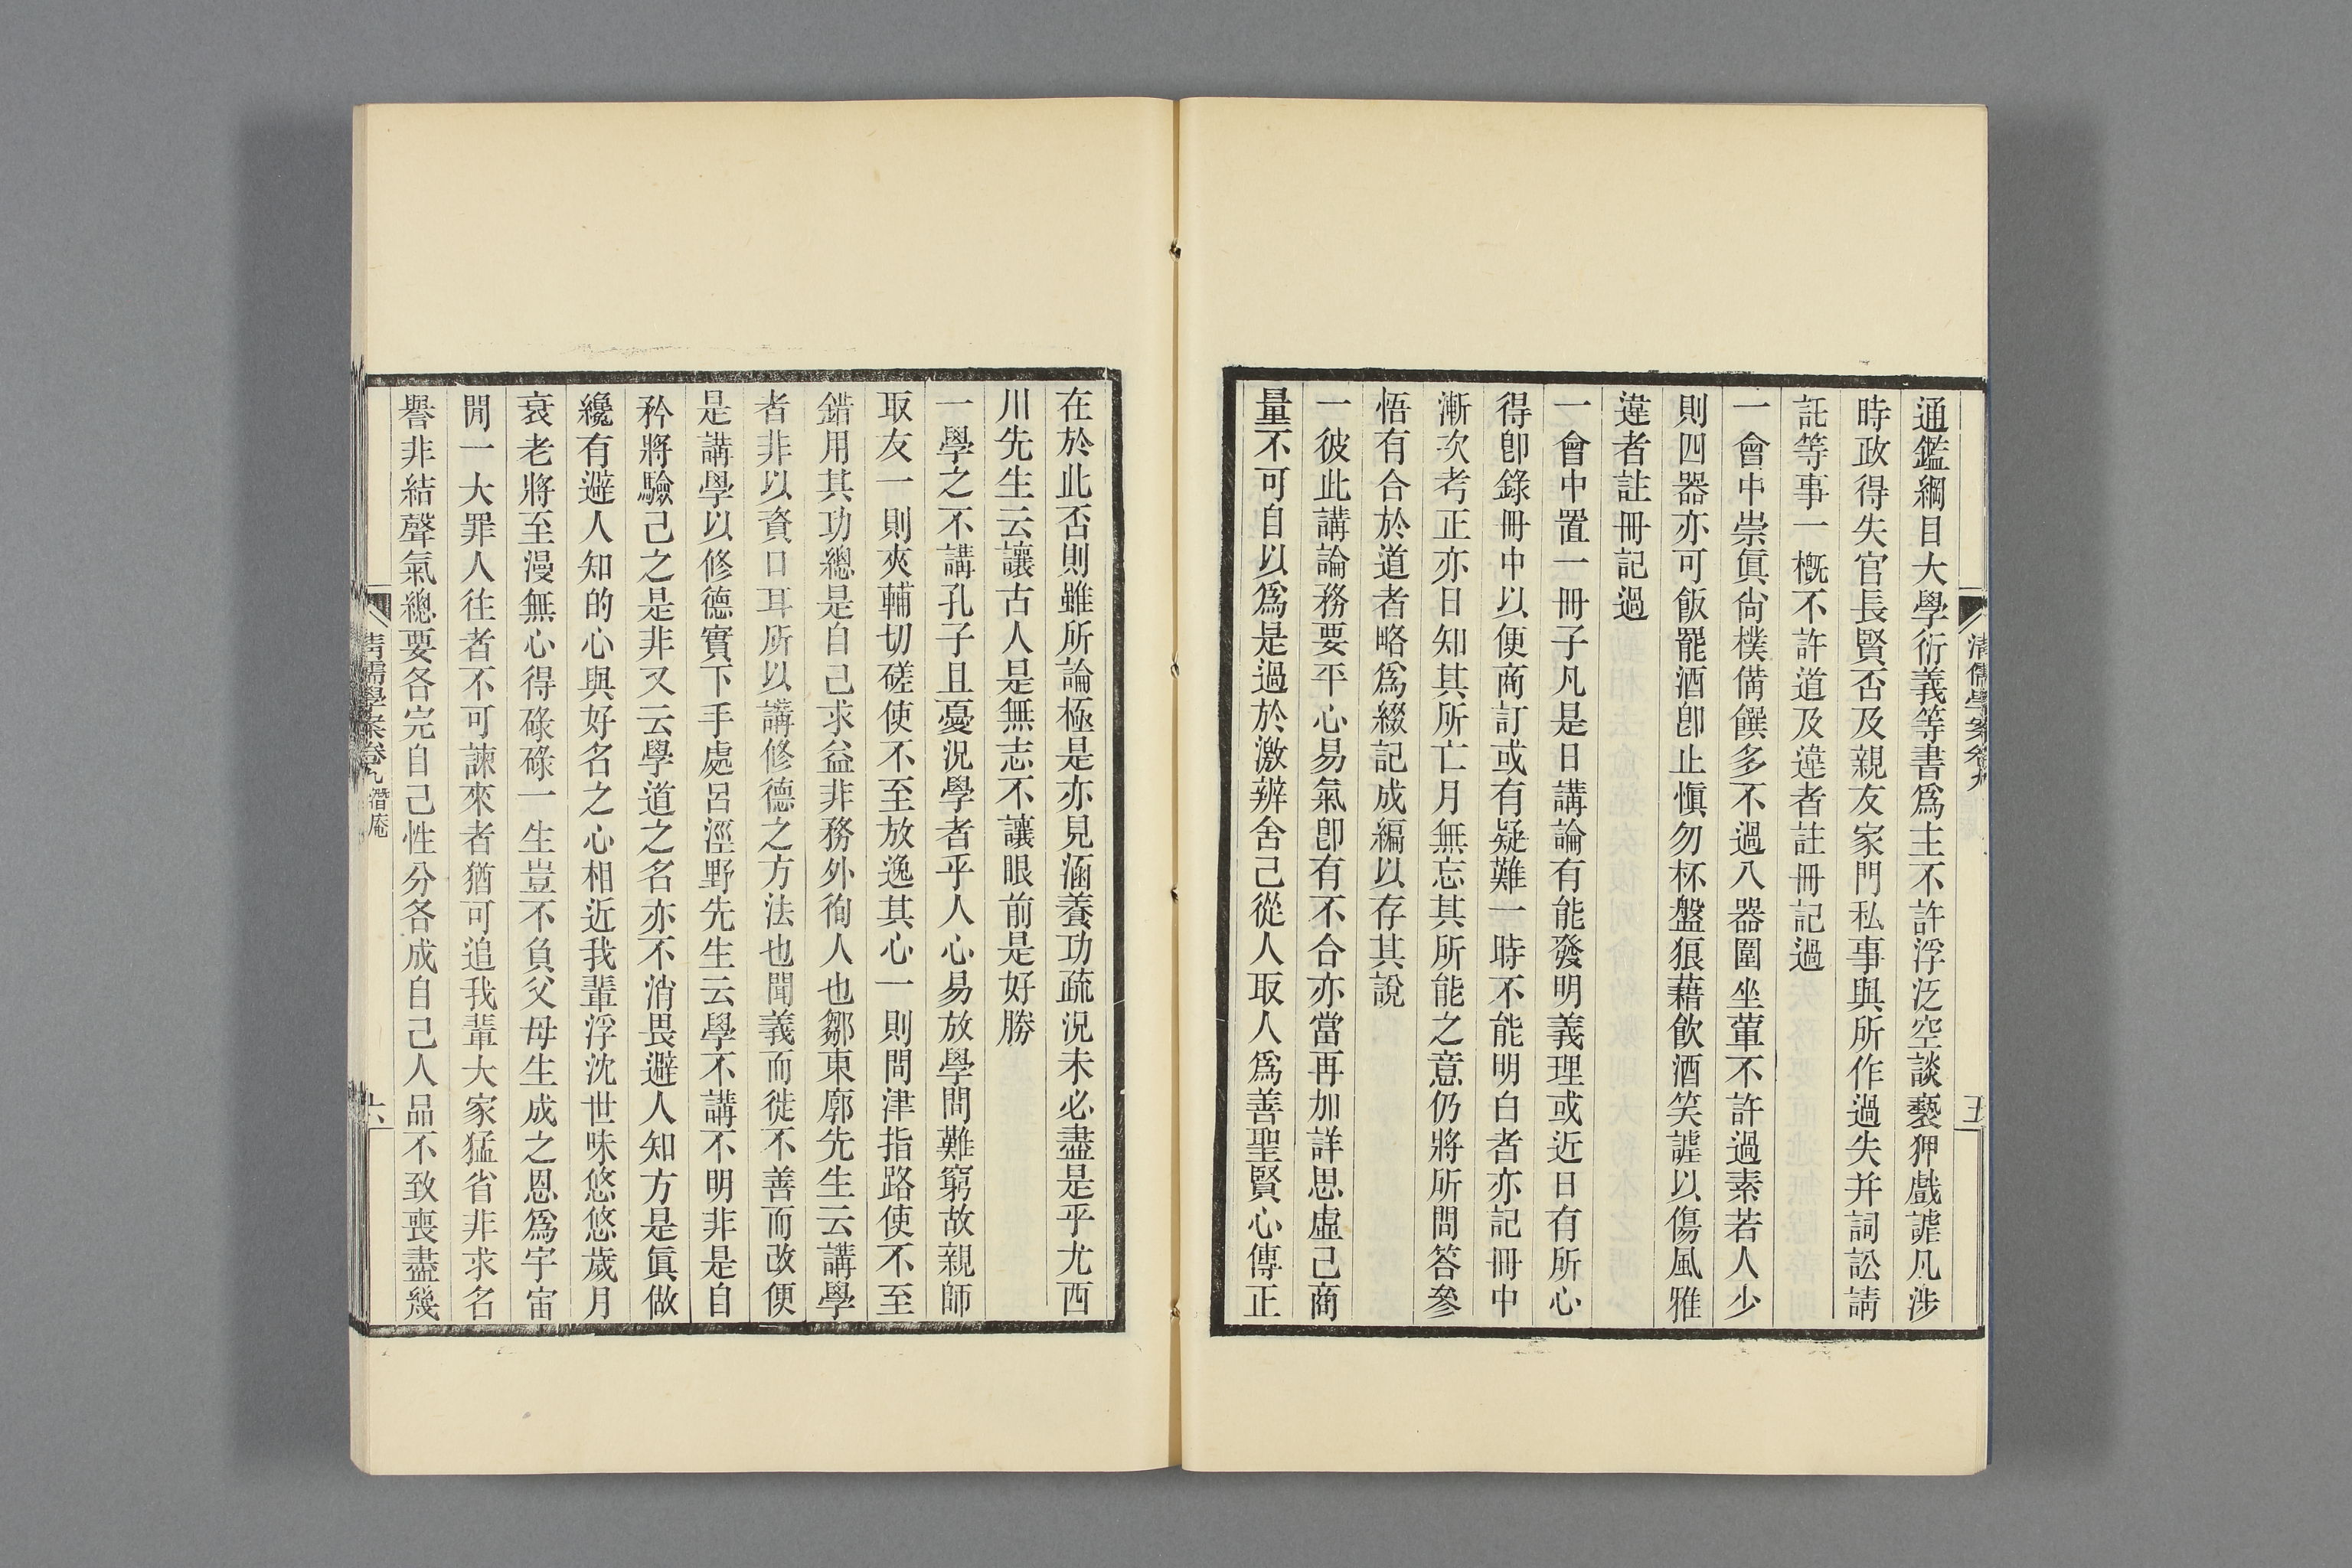 清儒學案卷九
五
通鑑綱目大學衍義等書爲主不許浮泛空談褻狎戲謔凡涉
時政得失官長賢否及親友家門私事與所作過失并詞訟請
託等事一概不許道及違者註冊記過
一會中崇眞尙樸備饌多不過八器圍坐葷不許過素若人少
則四器亦可飯罷酒卽止愼勿杯盤狼藉飮酒笑謔以傷風雅
違者註冊記過
一會中置一冊子凡是日講論有能發明義理或近日有所心
得卽錄冊中以便商訂或有疑難一時不能明白者亦記冊中
漸次考正亦日知其所亡月無忘其所能之意仍將所問答參
悟有合於道者略爲綴記成編以存其說
一彼此講論務要平心易氣卽有不合亦當再加詳思虛己商
量不可自以爲是過於激辨舍己從人取人爲善聖賢心傳正
在於此否則雖所論極是亦見涵養功疏況未必盡是乎尤西
川先生云讓古人是無志不讓眼前是好勝
一學之不講孔子且憂況學者乎人心易放學問難窮故親師
取友一則夾輔切磋使不至放逸其心一則問津指路使不至
錯用其功總是自己求益非務外徇人也鄒東廓先生云講學
者非以資口耳所以講修德之方法也聞義而徙不善而改便
是講學以修德實下手處呂涇野先生云學不講不明非是自
矜將驗己之是非又云學道之名亦不消畏避人知方是眞做
纔有避人知的心與好名之心相近我輩浮沈世味悠悠歲月
衰老將至漫無心得碌碌一生豈不負父母生成之恩爲宇宙
閒一大罪人往者不可諫來者猶可追我輩大家猛省非求名
譽非結聲氣總要各完自己性分各成自己人品不致喪盡幾
清儒學案卷九 潛庵
六